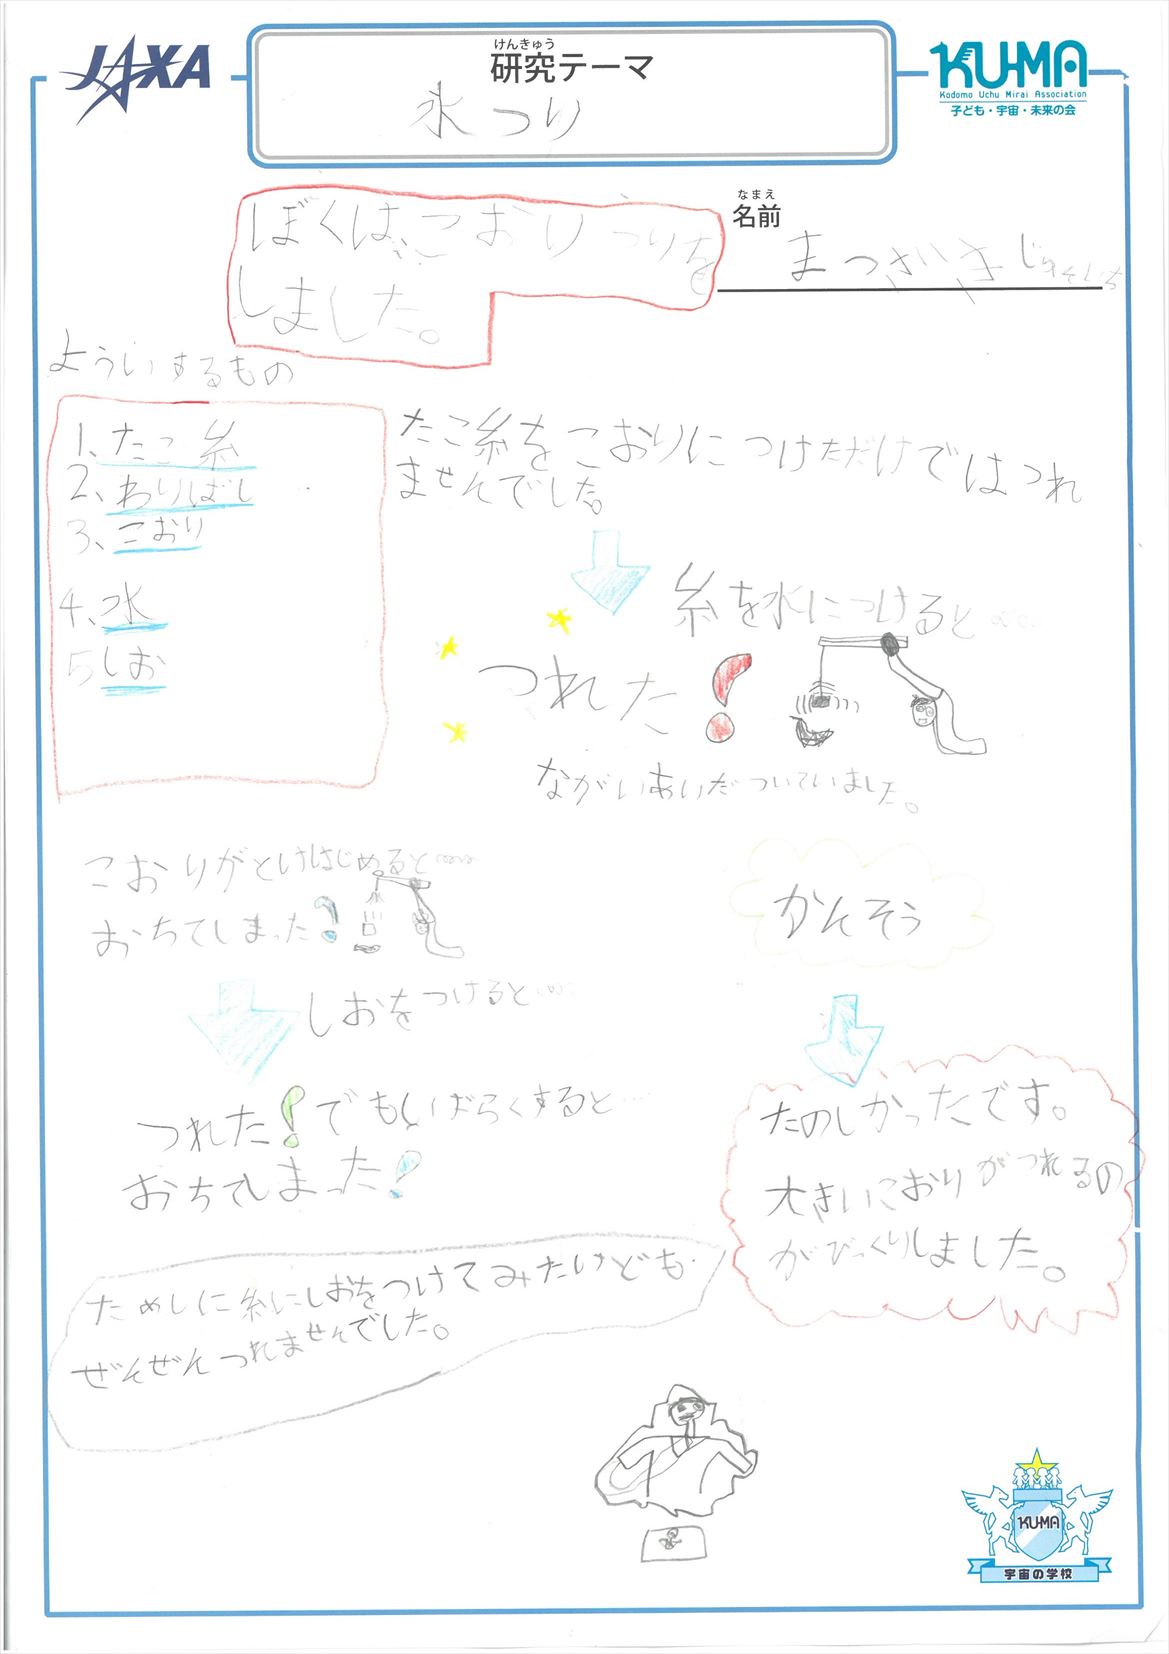 JAXA
けんきゅう
研究テーマ
氷つり
KU-MA
Kodomo Uchu Mirai Association
子ども・宇宙・未来の会
なまえ
名前
まつざき
ぼくは、こおりつりを
しました。
よういするもの
1、たこ糸
2、わりばし
3、こおり
4、水
5しお
たこ糸をこおりにつけただけではつれ
ませんでした。
糸を水につけると……
つれた!
ながいあいだついていました。
こおりがとけはじめると……
おちてしまった!
しおをつけると……
つれた!でもしばらくすると…
おちてしまった!
ためしに糸にしおをつけてみたけども
ぜんぜんつれませんでした。
かんそう
たのしかったです。
大きいこおりがつれるの
がびっくりしました。
KU-MA
宇宙の学校